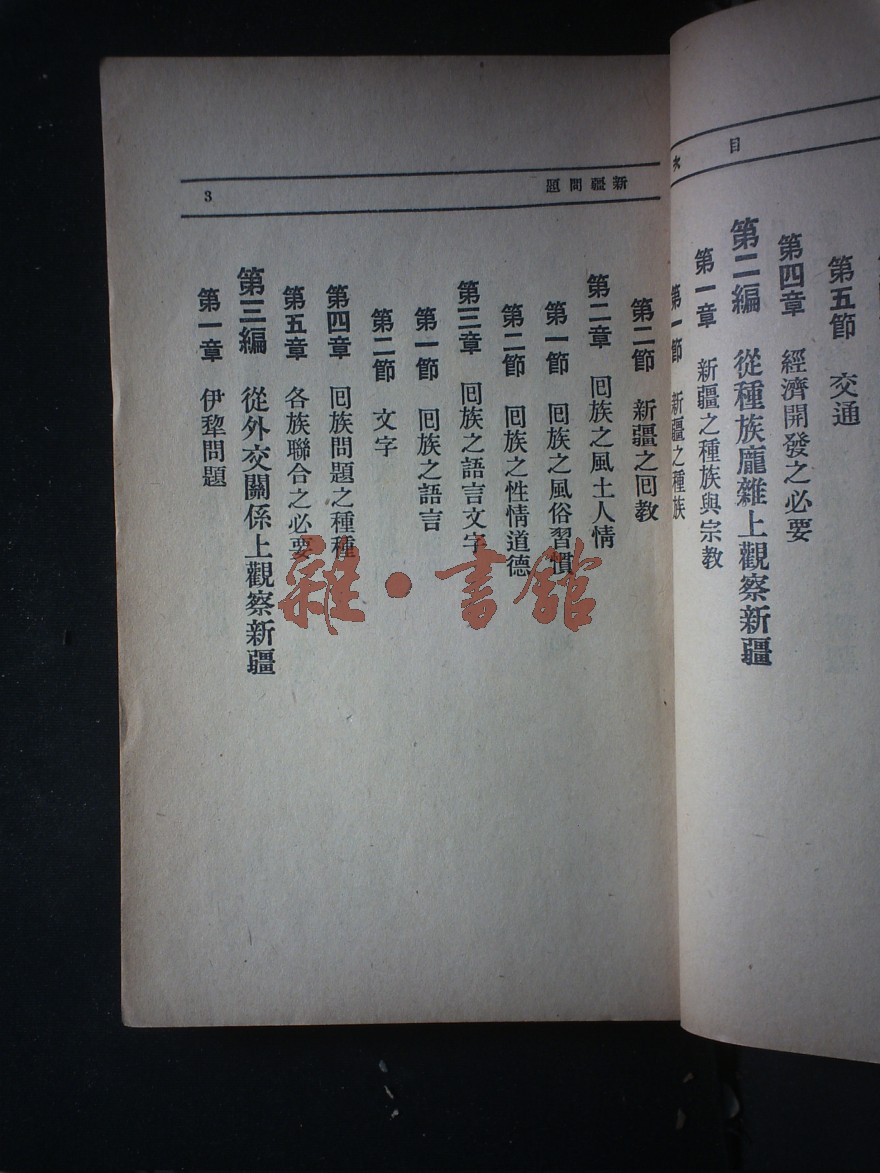 目次
第五節 交通
第四章 經濟開發之必要
第二編 從種族龐雜上觀察新疆
第一章 新疆之種族與宗教
第一節 新疆之種族
新疆問題
3
第二節 新疆之回教
第二章 回族之風土人情
第一節 回族之風俗習慣
第二節 回族之性情道德
第三章 回族之語言文字
第一節 回族之語言
第二節 文字
第四章 回族問題之種種
第五章 各族聯合之必要
第三編 從外交關係上觀察新疆
第一章 伊犂問題
雜·書館